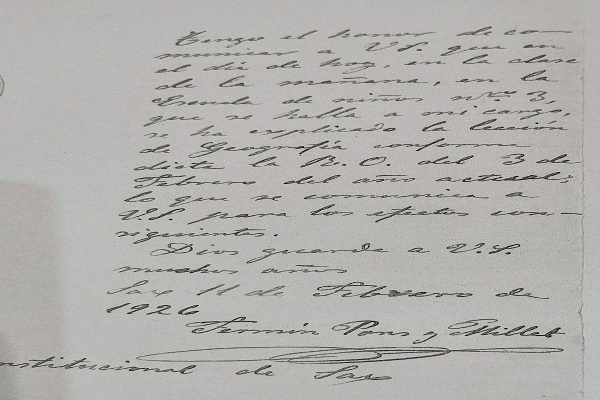 Tengo el honor de co-
municar a V.S. que en
el día de hoy, en la clase
de la mañana, en la
Escuela de niños nº 3,
que se halla a mi cargo,
se ha explicado la lección
de Geografía conforme
dicta la R.O. del 3 de
Febrero del año actual;
lo que se comunica a
V.S. para los efectos con-
siguientes.
Dios guarde a V.S.
muchos años
Sax 11 de Febrero de
1926
Fermín Pons y Millet
nstitucional de Sax